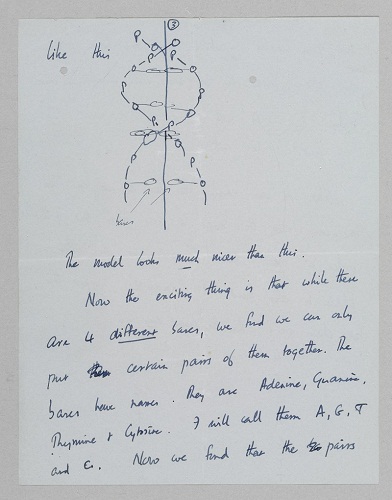 ③
like this
P P P
P P
P P
P P
bases
The model looks much nicer than this.
Now the exciting thing is that while there
are 4 different bases, we find we can only
put certain pairs of them together. The
bases have names. They are Adenine, Guanine,
Thymine & Cytosine. I will call them A, G, T
and C. Now we find that the pairs